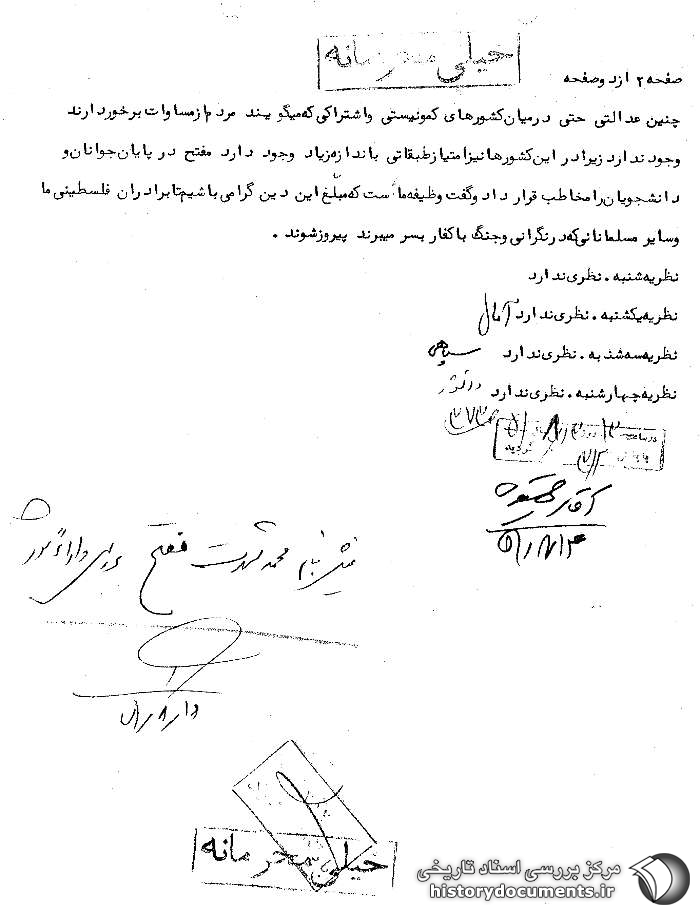 خیلی محرمانه
صفحه ۲ از دو صفحه
چنین عدالتی حتی در میان کشورهای کمونیستی و اشتراکی که میگویند مردم از مساوات برخوردارند
وجود ندارد زیرا در این کشورها نیز امتیاز طبقاتی باندازه زیاد وجود دارد مفتح در پایان جوانان و
دانشجویان را مخاطب قرار داد و گفت وظیفه ما است که مبلّغ این دین گرامی باشیم تا برادران فلسطینی ما
و سایر مسلمانانی که در نگرانی و جنگ با کفار بسر میبرند پیروز شوند .
نظریه شنبه . نظری ندارد
نظریه یکشنبه . نظری ندارد آمال
نظریه سه شنبه . نظری ندارد سپاهی
نظریه چهارشنبه . نظری ندارد دانشور
آقای
محمد شهرت مفتح
خیلی محرمانه
مرکز بررسی اسناد تاریخی
historydocuments.ir